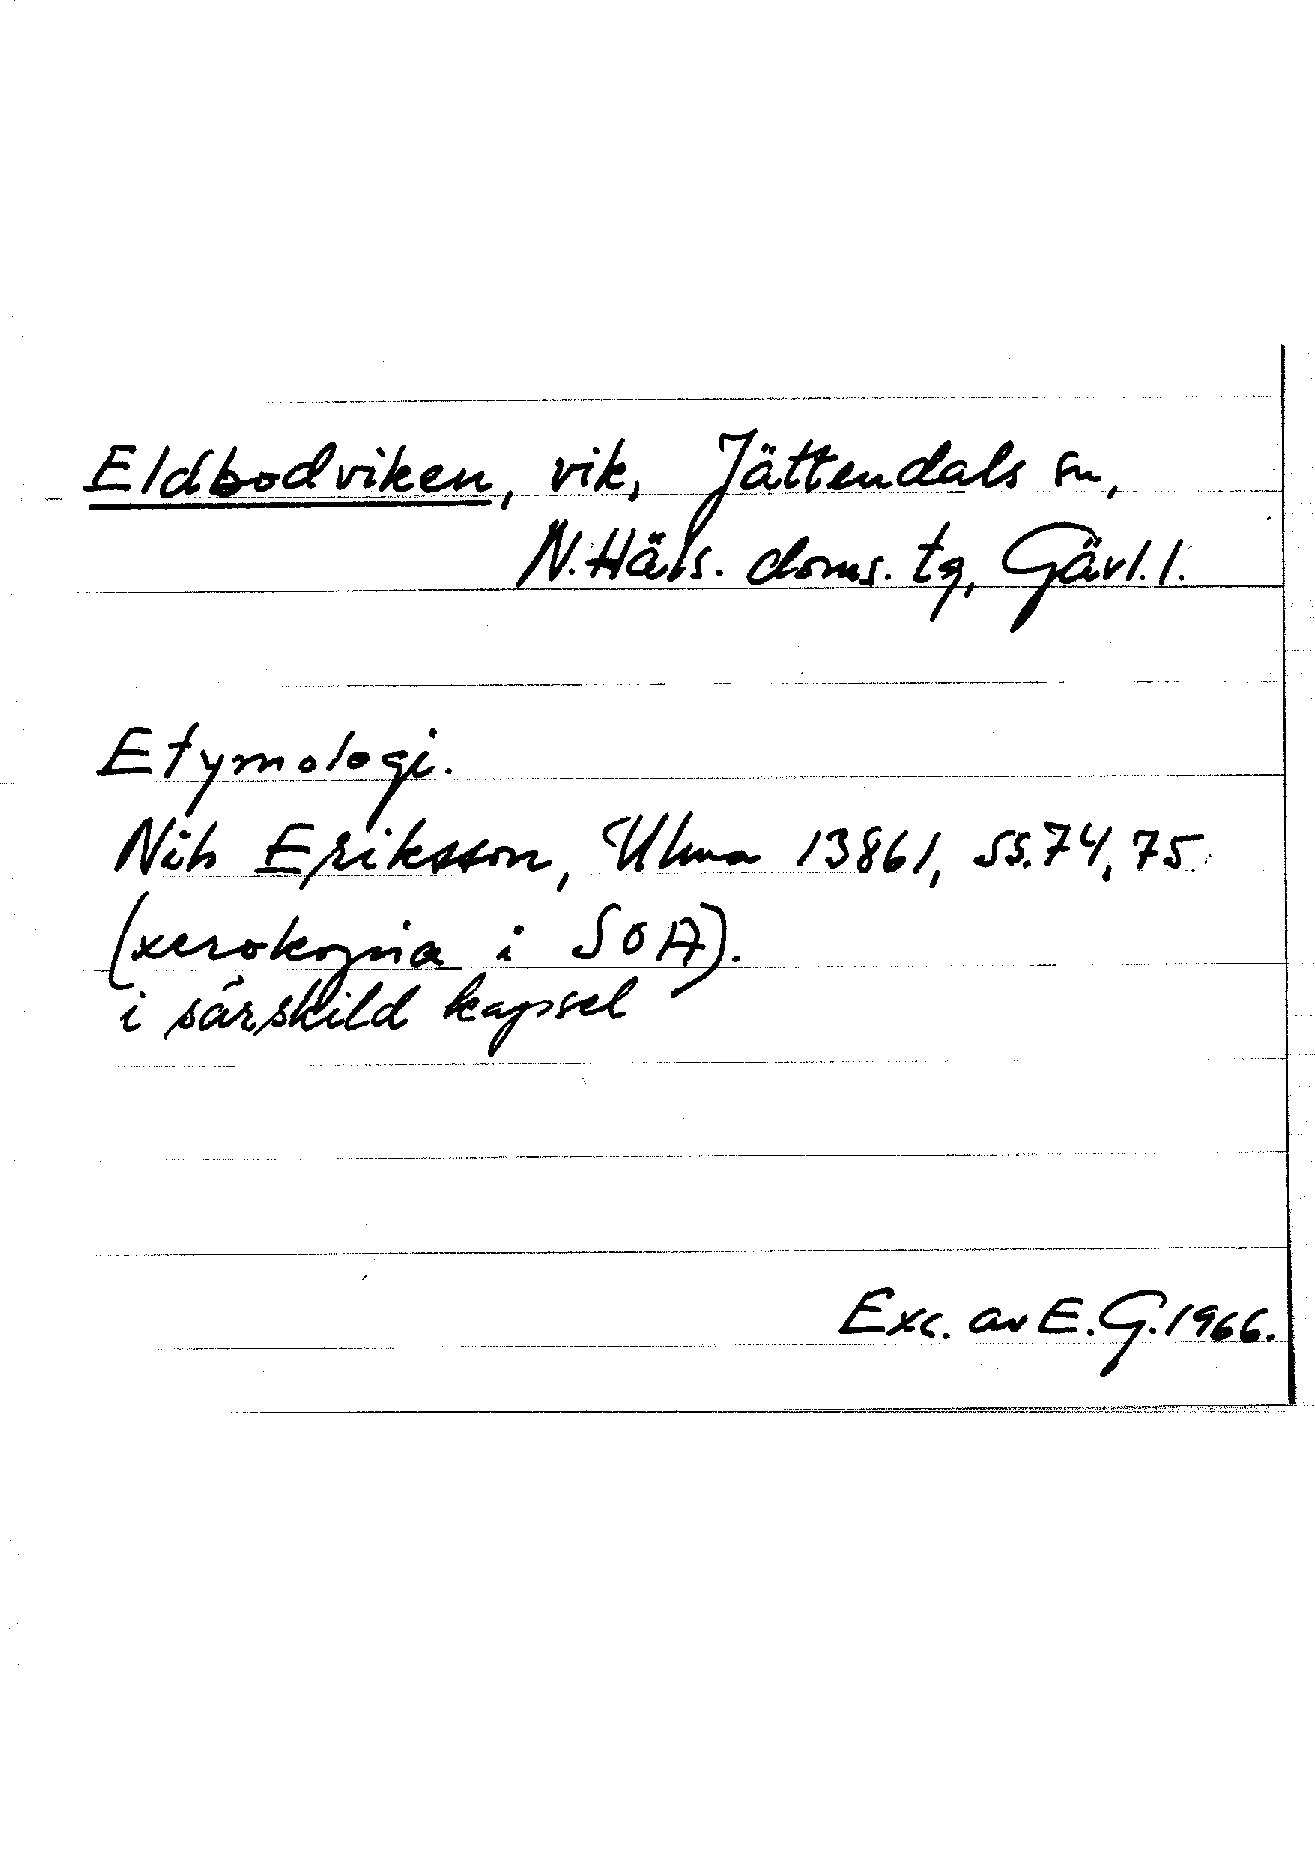 Eldbodviken, vik, Jättendals sn,
N. Häls. doms. tg, Gävl. l.
Etymologi.
Nils Eriksson, Ulma 13861, ss. 74, 75.
(xerokopia i SOA).
i särskild kapsel
Exc. av E. G. 1966.